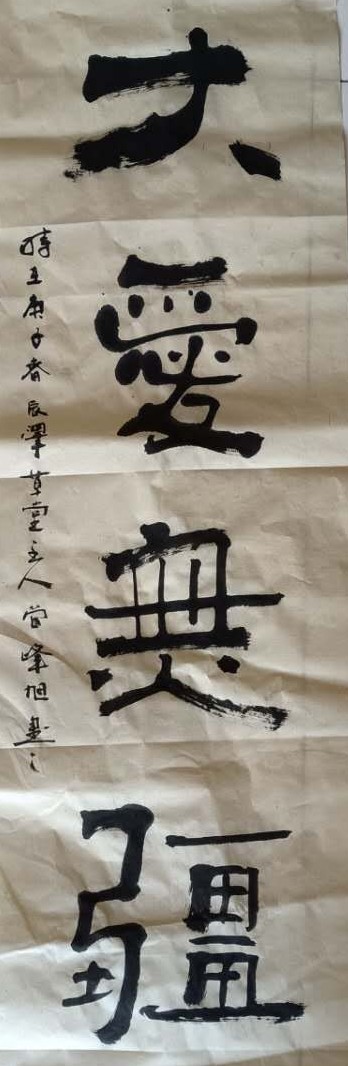 大愛無疆
時在庚子春辰澤草堂主人曾峰旭書之